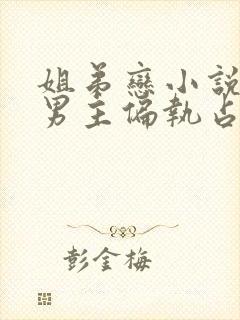 姐弟戀小說
男主偏執占
彭金梅